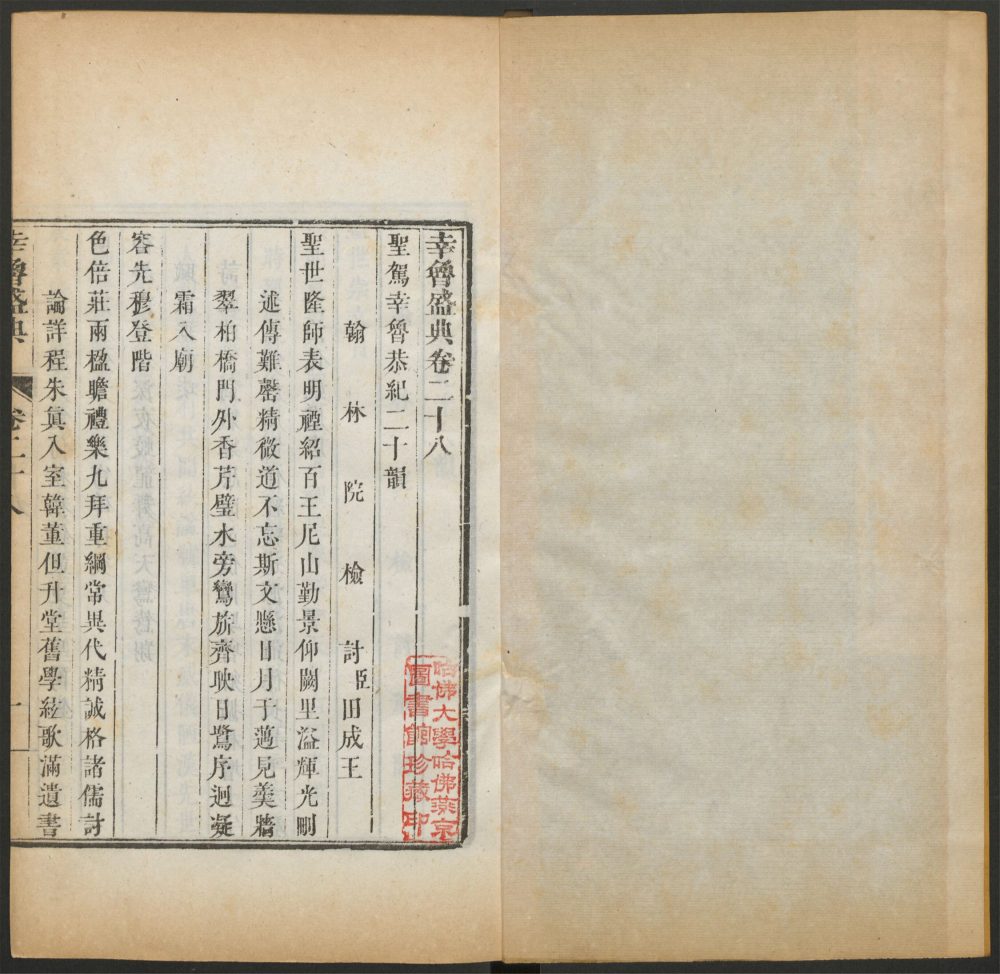 幸魯盛典卷二十八
聖駕幸魯恭紀二十韻
翰林院檢討臣田成玉
聖世隆師表明禋紹百王尼山勤景仰闕里溢輝光刪
述傳難罄精微道不忘斯文懸日月于邁見羹牆
翠柏橋門外香芹璧水旁鸞旂齊映日鷺序迥凝
霜入廟
容先穆登階
色倍莊兩楹瞻禮樂九拜重綱常異代精誠格諸儒討
論詳程朱眞入室韓董但升堂舊學絃歌滿遺書
幸魯盛典
卷二十八
一
哈佛大學哈佛燕京
圖書館珍藏印